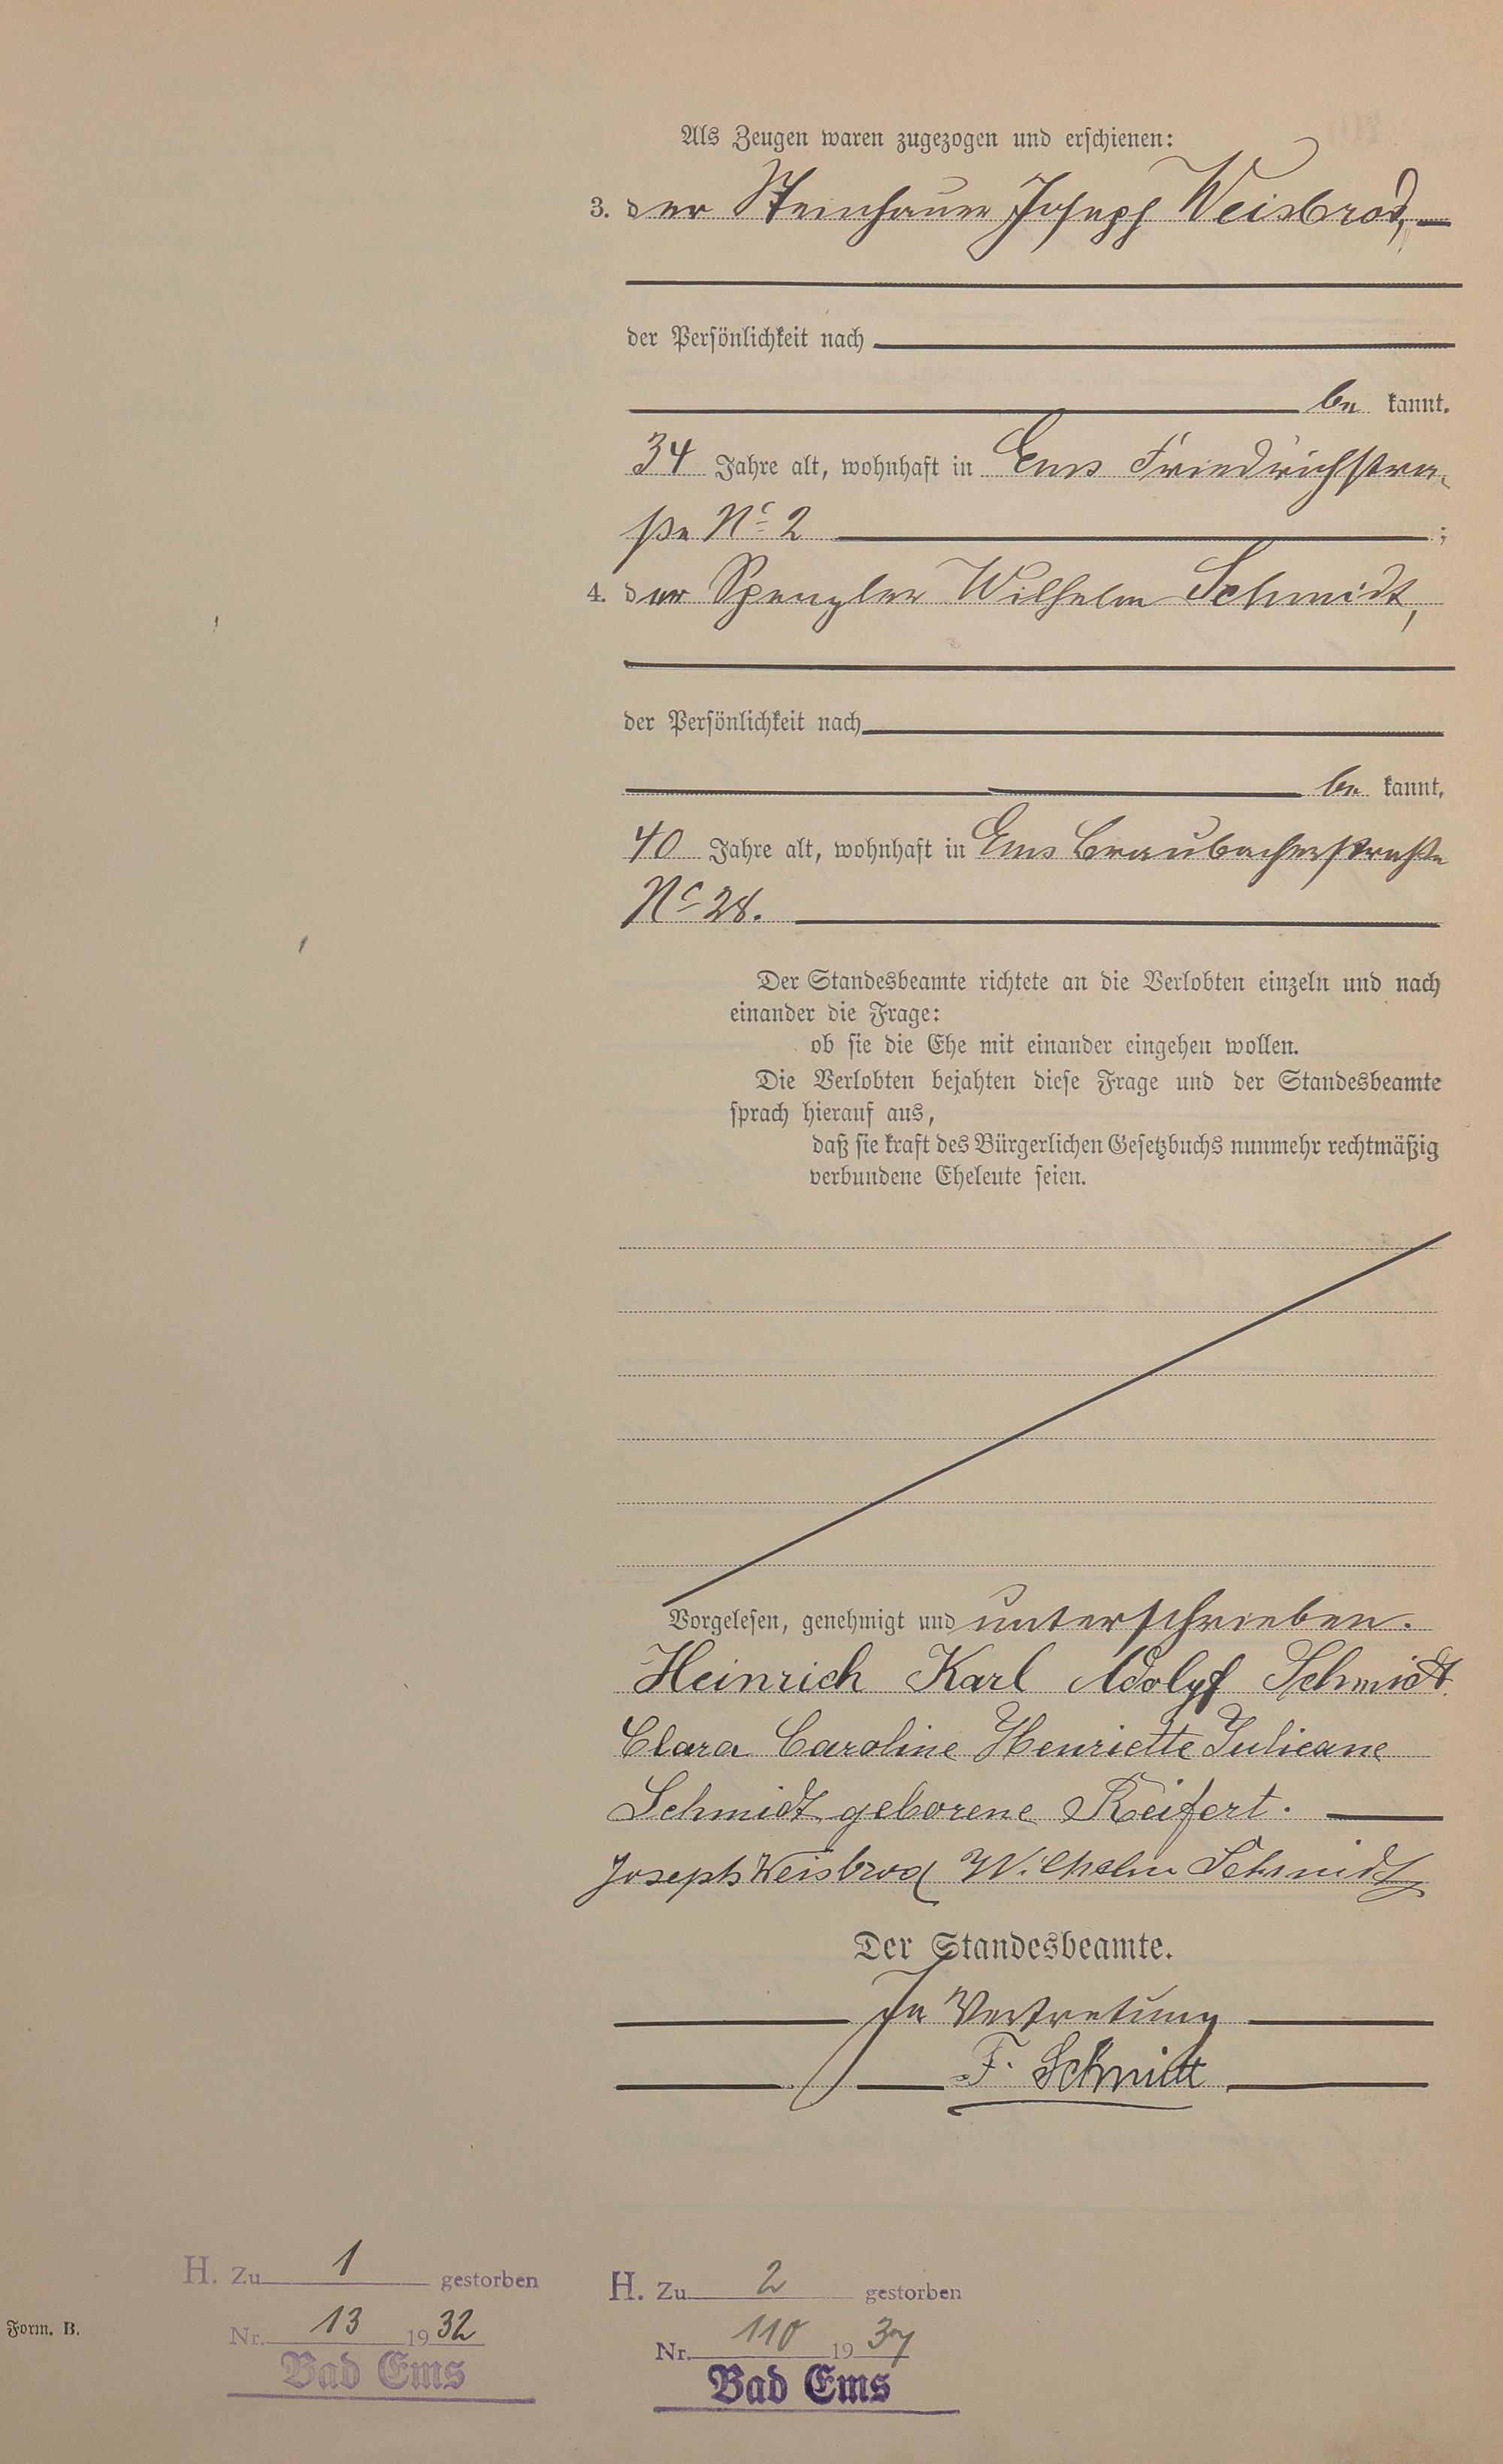 Als Zeugen waren zugezogen und erschienen:
3. der Steinhauer Joseph Weisbrod,
der Persönlichkeit nach
be kannt.
34 Jahre alt, wohnhaft in Ems Friedrichstra-
ße No 2 ;
4. der Spengler Wilhelm Schmidt,
der Persönlichkeit nach
be kannt,
40 Jahre alt, wohnhaft in Ems Braubacherstraße
No 28.
Der Standesbeamte richtete an die Verlobten einzeln und nach
einander die Frage:
ob sie die Ehe mit einander eingehen wollen.
Die Verlobten bejahten diese Frage und der Standesbeamte
sprach hierauf aus,
daß sie kraft des Bürgerlichen Gesetzbuchs nunmehr rechtmäßig
verbundene Eheleute seien.
Vorgelesen, genehmigt und unterschrieben.
Heinrich Karl Adolf Schmidt.
Clara Caroline Henriette Julieane
Schmidt geborene Reifert.
Joseph Weisbrod Wilhelm Schmidt
Der Standesbeamte.
In Vertretung
F. Schmitt
H. Zu 1 gestorben
Nr. 13 1932
Bad Ems
H. Zu 2 gestorben
Nr. 110 1937
Bad Ems
Form. B.